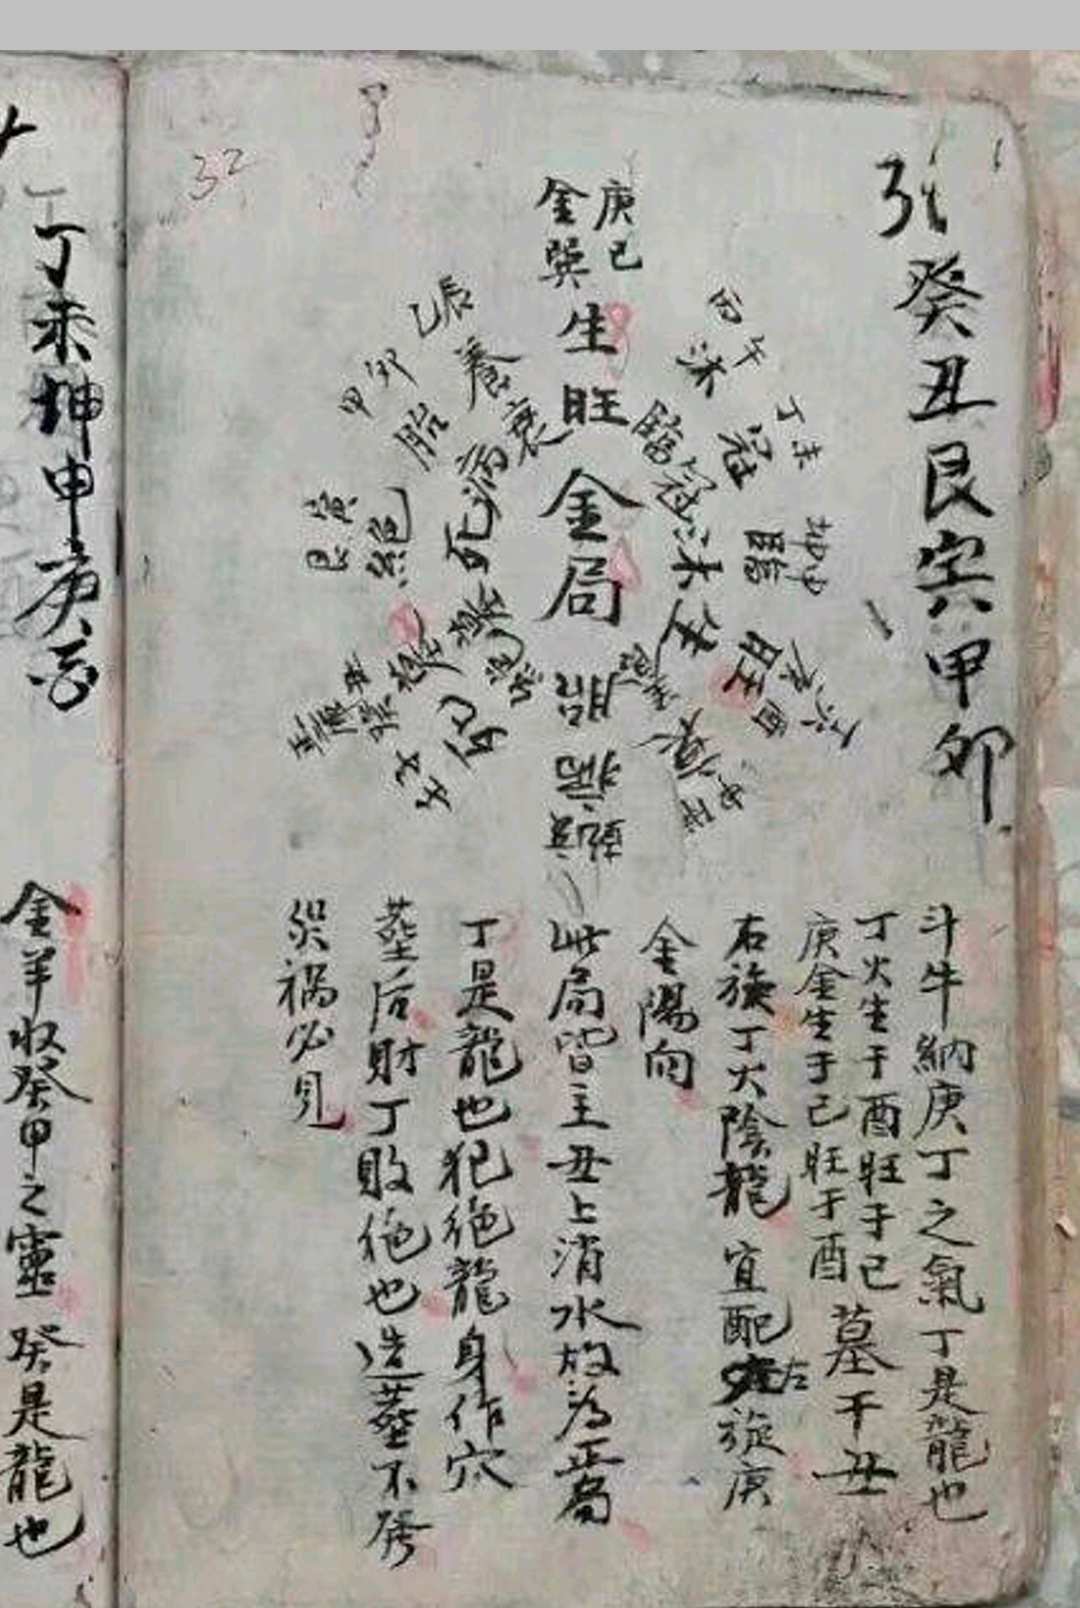 癸丑艮寅甲卯
32
庚巳
金巽
生
旺
金局
乙辰
養
衰
甲卯
胎
病
艮寅
絕
死
丙午
沐
臨
丁未
冠
冠
坤申
臨
沐
庚酉
旺
生
胎
病
死
斗牛納庚丁之氣丁是龍也
丁火生于酉旺于巳
庚金生于巳旺于酉
墓于丑
右旋丁火陰龍宜配左旋庚
金陽向
此局皆主丑上消水放為正局
丁是龍也犯絕龍身作穴
塟后財丁敗絕也造塟不發
災禍必見
丁未坤申庚酉
金羊收癸甲之靈癸是龍也